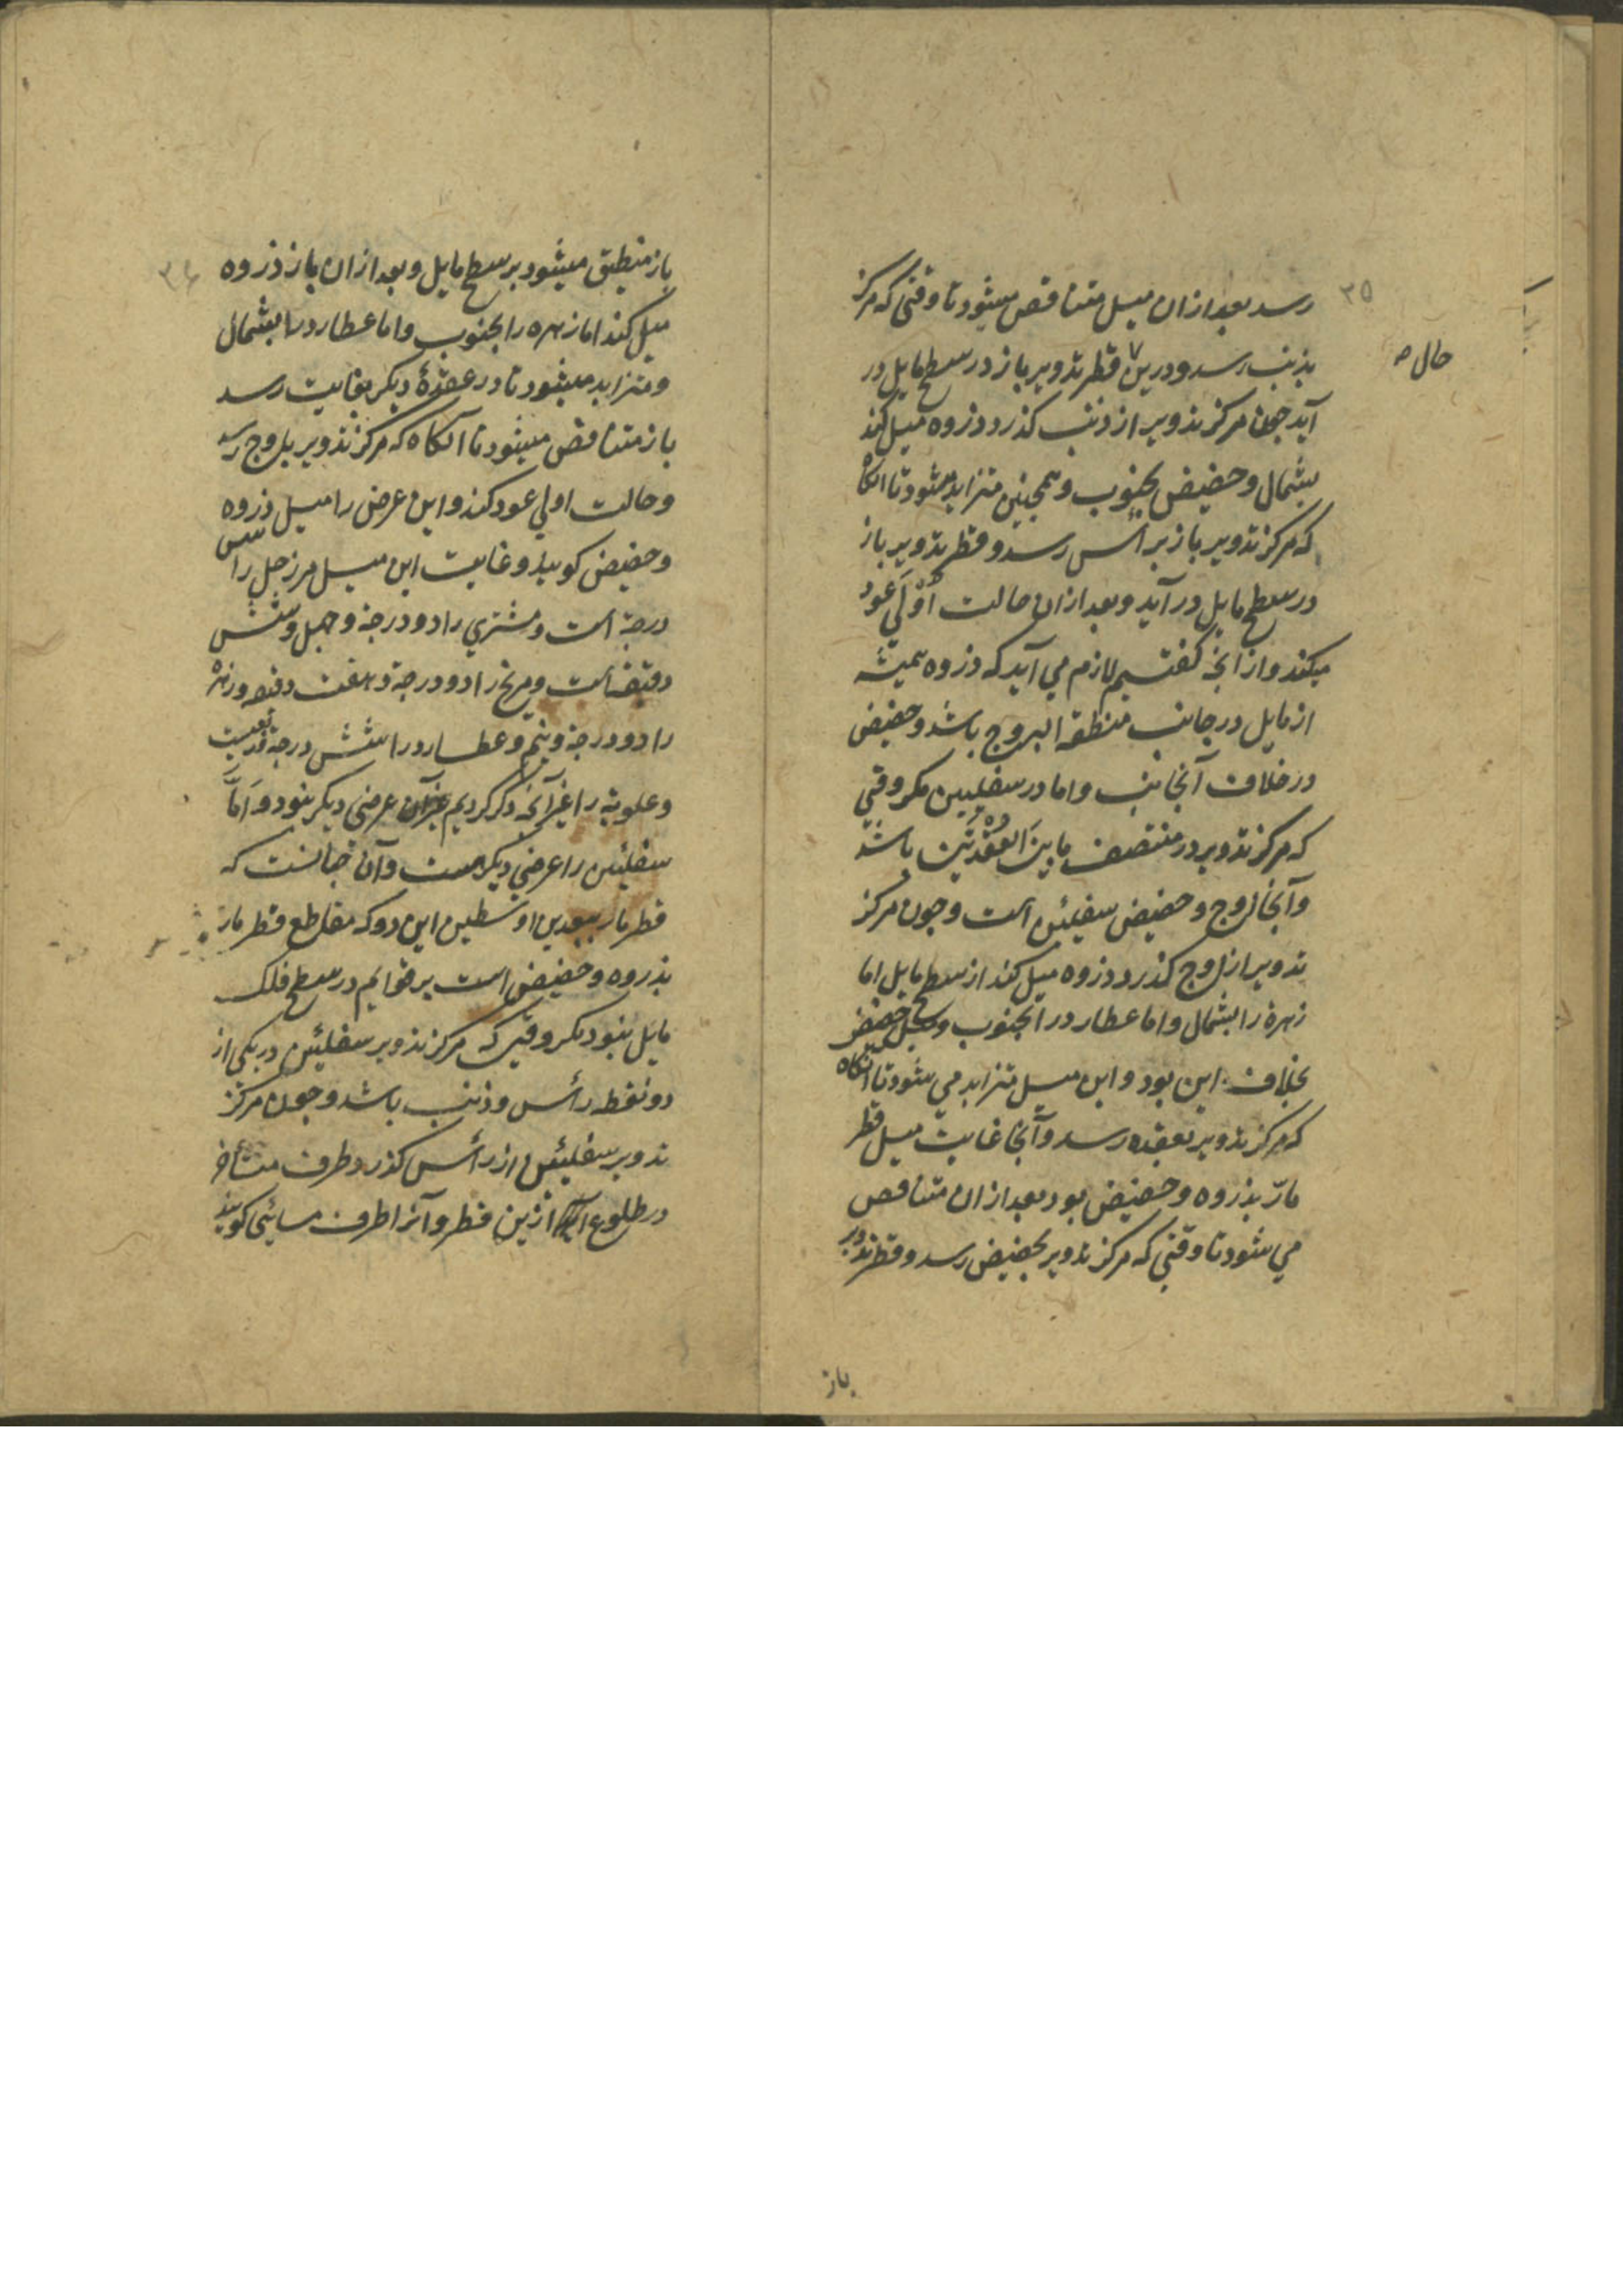 ۳۵
رسد بعد ازان میل متناقص میشود تا وقتی که مرکز
بذنب رسد و درین قطر تدویر باز در سطح مایل در
حال صح
آید جون مرکز تدویر از ذنب کذرد و ذروه میل کند
بشمال و حضیض بجنوب و همجنین متزاید میشود تا انکاه
که مرکز تدویر باز براس رسد و قطر تدویر باز
در سطح مایل در آید و بعد ازان حالت اولی عود
میکند و از انجه کفتیم لازم می آید که ذروه همیشه
از مایل در جانب منطقه البروج باشد و حضیض
در خلاف آنجانب و اما در سفلیین مکر وقتی
که مرکز تدویر در منتصف مابین العقدتین باشد
وآنجا اوج و حضیض سفلیین است و جون مرکز
تدویر از اوج کذرد ذروه میل کند از سطح مایل اما
زهره را بشمال و اما عطارد را بجنوب و میل حضیض
بخلاف این بود و این میل متزاید می شود تا انکاه
که مرکز تدویر بعقده رسد وآنجا غایت میل قطر
مارّ بذروه و حضیض بود بعد ازان متناقص
می شود تا وقتی که مرکز تدویر بحضیض رسد و قطر تدویر
باز
۳۶
باز منطبق میشود بر سطح مایل و بعد ازان باز ذروه
میل کند اما زهره را بجنوب و اما عطارد را بشمال
و متزاید میشود تا در عقدهٔ دیکر بغایت رسد
باز متناقص میشود تا آنکاه که مرکز تدویر باوج رسد
و حالت اولی عود کند و این عرض را میل ذروه
و حضیض کویند و غایت این میل مر زحل را
درجه است و مشتری را دو درجه و جهل و شش
دقیقه است و مریخ را دو درجه و هفت دقیقه و زهره
را دو درجه و نیم و عطارد را شش درجه و
و علویه را غیر آنجه ذکر کردیم عرضی دیکر نبود و اَمّا
سفلیین را عرضی دیکر هست و آن جنانست که
قطر مار ببعدین اوسطین این دو که مقاطع قطر مار
بذروه و حضیض است بر قوایم در سطح فلک
مایل نبود مکر وقتی که مرکز تدویر سفلیین در یکی از
دو نقطه رأس و ذنب باشد و جون مرکز
تدویر سفلیین از رأس کذرد طرف متأخر
در طلوع ازین قطر و آنرا طرف مسائی کویند